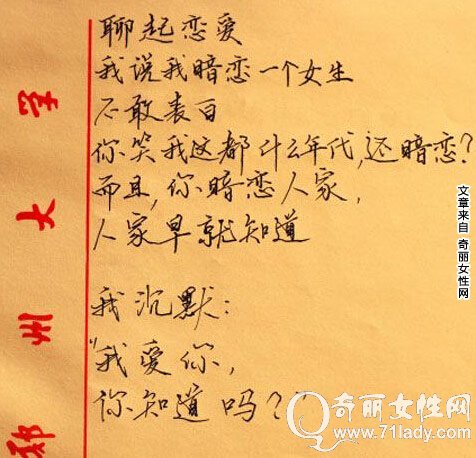 聊起恋爱
我说我暗恋一个女生
不敢表白
你笑我这都什么年代,还暗恋?
而且,你暗恋人家,
人家早就知道
我沉默:
"我爱你,
你知道吗?"
郑州大学
文章来自 奇丽女性网
奇丽女性网
www.71lady.com